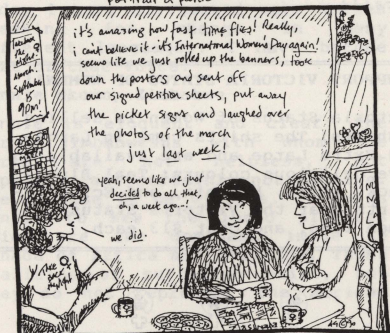 it's amazing how fast time flies! Really,
i can't believe it - it's International Women's Day again!
seems like we just rolled up the banners, took
down the posters and sent off
our signed petition sheets, put away
the picket signs and laughed over
the photos of the march
just last week!
yeah, seems like we just
decided to do all that,
oh, a week ago..!
we did.
the
night
March.
September
15
9pm!